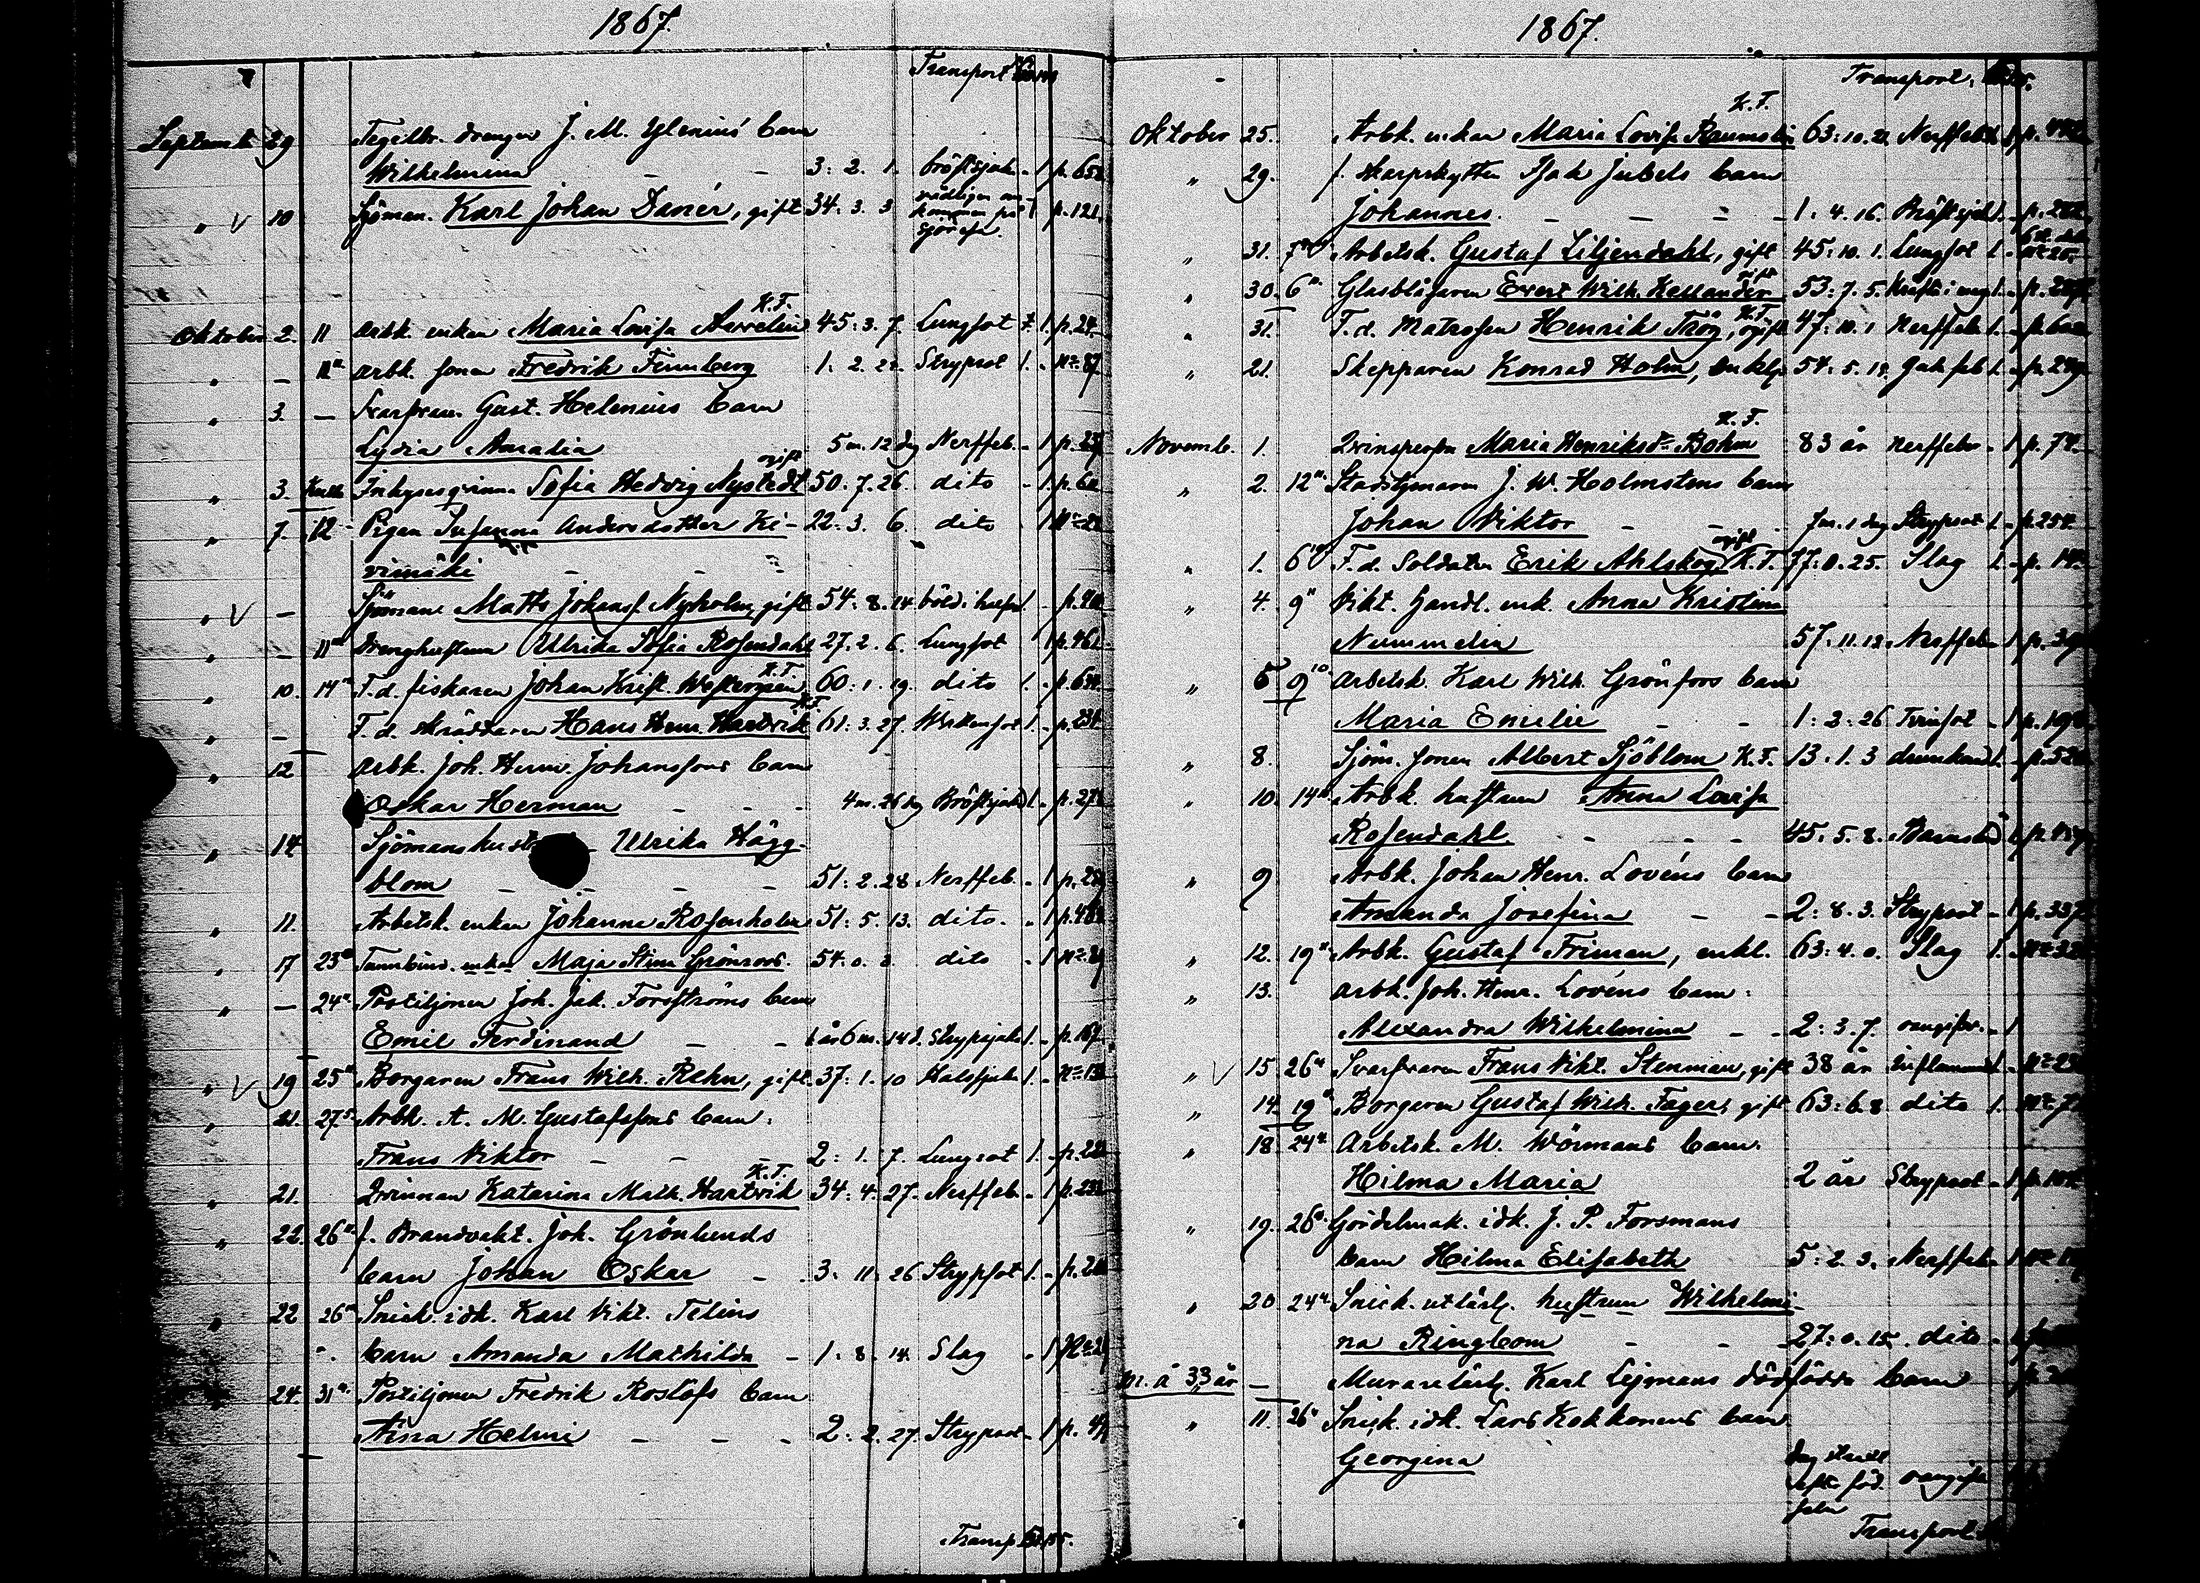 1867.
Transport
Septemb. 29 Tegelbr. drengen J. M. Ylenius' barn
Wilhelmina - - 3. 2. 1. bröstsjuk. - 1 p. 65
" V 10 Sjöman. Karl Johan Danér, gift 34. 3. 3 p. 121.
kommen på
sjöresa.
K.F.
Oktober 2. 11 arbk. enkan Maria Lovisa 45. 3. 7. Lungsot 1 p. 24.
" - 11" arbk. sonen Fredrik Finnberg 1. 2. 22. Strypsot 1. No 87
" 3. - Svarfvaren Gust. Helenius barn
Lydia Amalia 5 m. 12 dg Nerffeb. - 1 p. 237
ogift
" 3. Inhysesqvinna Sofia Hedvig Nystedt 50. 7. 26. dito - 1 p. 60
" 7. 12 Pigan Susanna Andersdotter Ki- 22. 3. 6. dito 1 No 22
vimäki - - -
" V - Sjöman Matts Johanss. Nyholm, gift 54. 8. 14 1. - p. 40
" - 11" Drenghustrun Ulrika Sofia Rosendahl 27. 2. 6. Lungsot 1 p. 461
K.F.
" 10. 14" F. d. fiskaren Johan Krist. Westergren 60. 1. 19. dito 1. - p. 634
" - F. d. skräddaren Hans Henr. Hartvik 61. 3. 27. Wattensot 1. - p. 234
" 12 Arbk. Joh. Herm. Johanssons barn
Oskar Herman - - - 4 m. 26 dg Bröstsjuk. 1. - p. 272
" 14 Sjömanshust Ulrika Hägg-
blom - - - 51. 2. 28 Nerffeb. - 1 p. 25
" 11. Arbetsk. enkan Johanna Rosenholm 51. 5. 13. dito. " 1 p. 48
" 17 23" Tunnbind. enkan Maja Stina Grönroos. 54. 0. 2. dito - 1 No 3
" - 24" Postiljonen Joh. Jak. Forsströms barn
Emil Ferdinand - - 1 år 6 m. 14 d. Strypsjuk. 1. - p. 167
" V 19 25" Borgaren Frans Wilh. Rehn, gift. 37. 1. 10 Halssjuk. 1. - No 13
" 21. 27 Arbk. A. M. Gustafssons barn.
Frans Viktor - - - 2. 1. 7. Lungsot 1. - p. 22
K.F.
" 21. Qvinnan Katarina Math. Hartvik 34. 4. 27. Nerffeb. - 1 p. 232
" 22. 26" f. Brandvakt. Joh. Grönlunds
barn Johan Oskar - - 3. 11. 26 Strypsot 1. - p. 20
" 22 26" Snick. idk. Karl Vikt. Telins
". barn Amanda Mathilda - 1. 8. 14. Slag " 1 No 2
" 24. 31" Postiljonen Fredrik Roslöfs barn
Aina Helmi - - - 2. 2. 27. Strypsot - 1 p. 4
Transp.
1867.
Transport.
K.F.
Oktober 25. Arbk. enkan Maria Lovisa Raumolin 63. 10. 21. Nerffeb. 1 p. 472
" 29. f. skarpskytten Isak Jubels barn
Johannes. - - - 1. 4. 16. Bröstsjuk. 1. - p. 212
" 31. 7 Arbetsk. Gustaf Liljendahl, gift 45. 10. 1. Lungsot 1.
gift
" 30. 6" Glasblåsaren Evert Wilh. Kellander 53. 7. 5. Kräfta i mag. 1. - p.
K.F.
" 31. F. d. Matrosen Henrik Trög, ogift 47. 10. 1 Nerffeb. 1. - p. 6
" 21. Skepparen Konrad Holm, enkl. 54. 5. 19. 1. - p. 249
K.F.
Novemb. 1. Qvinsperson Maria Henriksd:r Bohm 83 år Nerffeb. - 1 p. 74.
" 2. 12" J. W. Holmstens barn
Johan Viktor - - 7 m. 1 dg Strypsot 1. - p. 254
ogift
" 1. 6 F. d. Soldaten Erik Ahlskog K.F. 77. 0. 25. Slag 1. - p. 14
" 4. 9" Vikt. Handl. enk. Anna Kristina
Nummelin 57. 11. 13. Nerffeb. 1 p. 34
" 5 9 Arbetsk. Karl Wilh. Grönfors barn
Maria Emilie - - 1. 2. 26 Tvinsot - 1 p. 19
" 8. Sjöm. sonen Albert Sjöblom K.F. 13. 1. 3 drunknad 1. - p. 52
" 10. 14" Arbk. hustrun Anna Lovisa
Rosendahl. - - - 45. 5. 8. Barnsbörd 1 p. 459
" 9 Arbk. Johan Henr. Lovéns barn
Amanda Josefina - - 2. 8. 3. Strypsot - 1 p. 337
" 12. 19" Arbk. Gustaf Friman, enkl. 63. 4. 0. Slag 1. - No 32
" 13. arbk. Joh. Henr. Lovéns barn.
Alexandra Wilhelmina - - 2. 3. 7. oangifv. - 1
" V 15. 26" Svarfvaren Frans Vikt. Stenman, gift 38 år Inflammat. 1. - No 23
" 14. 19" Borgaren Gustaf Wilh. Fager, gift 63. 6. 8 dito 1. - No 7
" 18. 24" Arbetsk. M. Wörmans barn.
Hilma Maria 2 år Strypsot - 1 p. 104
" 19. 26" Gördelmak. idk. J. P. Forsmans
barn Hilma Elisabeth 5. 2. 3. Nerffeb. - 1 No 1
" 20. 24" Snick. utlärl. hustrun Wilhelmi-
na Ringbom - - - 27. 0. 15. dito - 1
m. å 33 år - Murarelärl. Karl Lejmans dödfödda barn
" 11. 26" Snick. idk. Lars Kokkonens barn
Georgina dog straxt
efter föd- oangifv.
seln
Transport